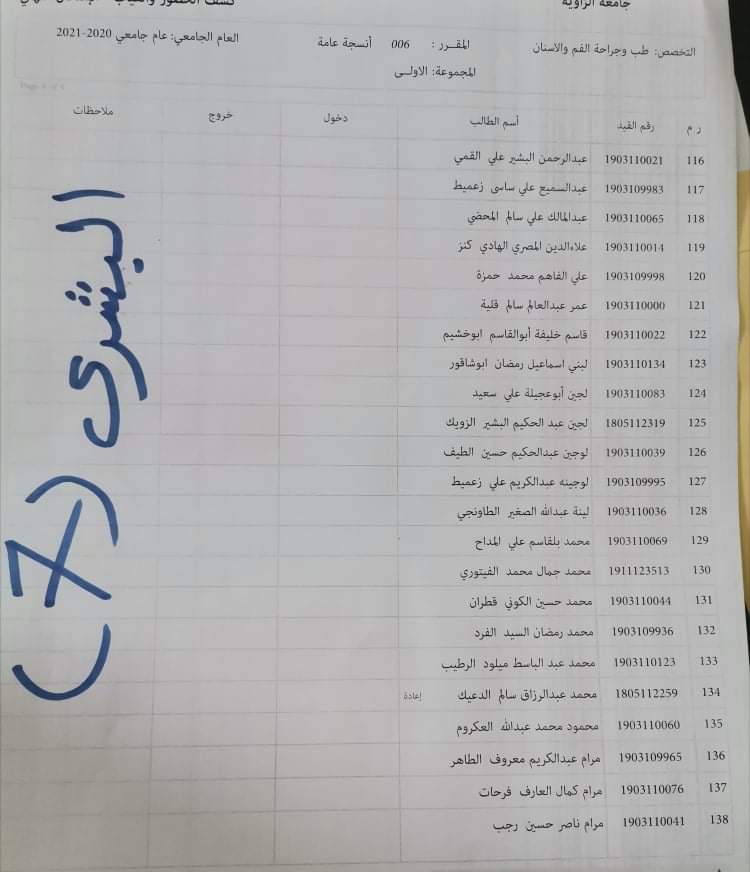 جامعة الزاوية
كشف الحضور والغياب
التخصص: طب وجراحة الفم والاسنان
المقـــرر : 006 أنسجة عامة
العام الجامعي: عام جامعي 2020-2021
المجموعة: الاولــى
ر م رقم القيد أسم الطالب دخول خروج ملاحظات
116 1903110021 عبدالرحمن البشير علي القمي
117 1903109983 عبدالسميع علي ساسى زعميط
118 1903110065 عبدالمالك علي سالم المحضي
119 1903110014 علاءالدين المصري الهادي كنز
120 1903109998 علي الفاهم محمد حمزة
121 1903110000 عمر عبدالعالم سالم قلية
122 1903110022 قاسم خليفة أبوالقاسم ابوخشيم
123 1903110134 لبني اسماعيل رمضان ابوشاقور
124 1903110083 لجين أبوعجيلة علي سعيد
125 1805112319 لجين عبد الحكيم البشير الزويك
126 1903110039 لوجين عبدالحكيم حسين الطيف
127 1903109995 لوجينه عبدالكريم علي زعميط
128 1903110036 لينة عبدالله الصغير الطاونجي
129 1903110069 محمد بلقاسم علي المداح
130 1911123513 محمد جمال محمد الفيتوري
131 1903110044 محمد حسين الكوني قطران
132 1903109936 محمد رمضان السيد الفرد
133 1903110123 محمد عبد الباسط ميلود الرطيب
134 1805112259 محمد عبدالرزاق سالم الدعيك إعادة
135 1903110060 محمود محمد عبدالله العكروم
136 1903109965 مرام عبدالكريم معروف الطاهر
137 1903110076 مرام كمال العارف فرحات
138 1903110041 مرام ناصر حسين رجب
البشرى (7)